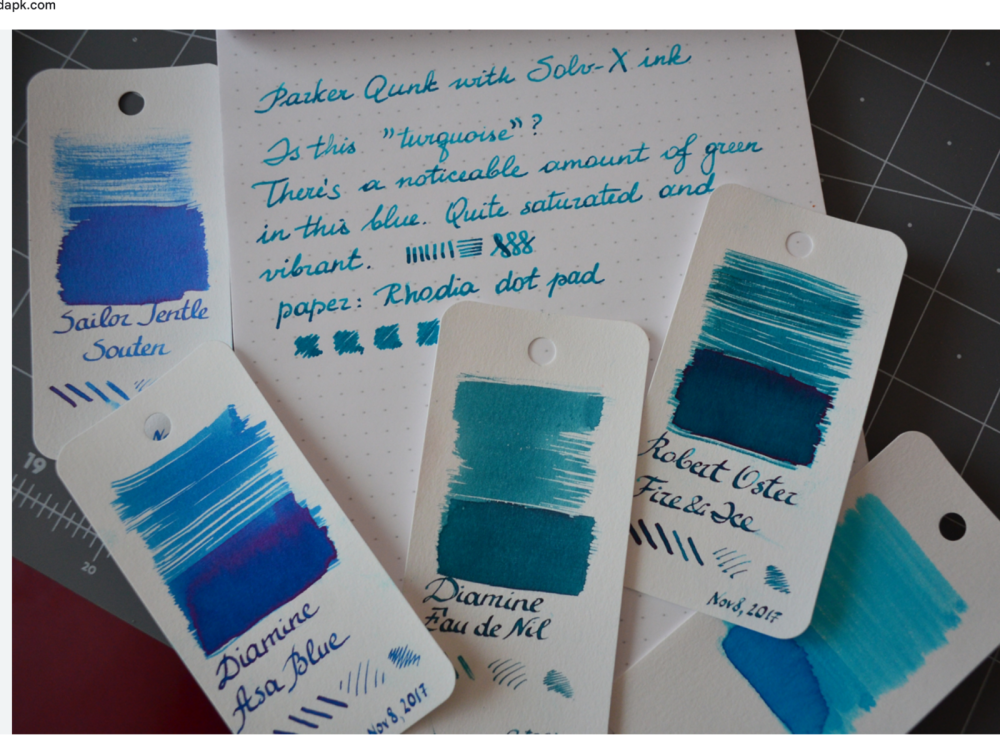 dapk.com
Parker Qunk with Solv-X ink
Is this "turquoise"?
There's a noticeable amount of green
in this blue. Quite saturated and
vibrant.
paper: Rhodia dot pad
Sailor Jentle
Souten
19
20
Diamine
Asa Blue
Nov 8, 2017
Diamine
Eau de Nil
Robert Oster
Fire & Ice
Nov 8, 2017